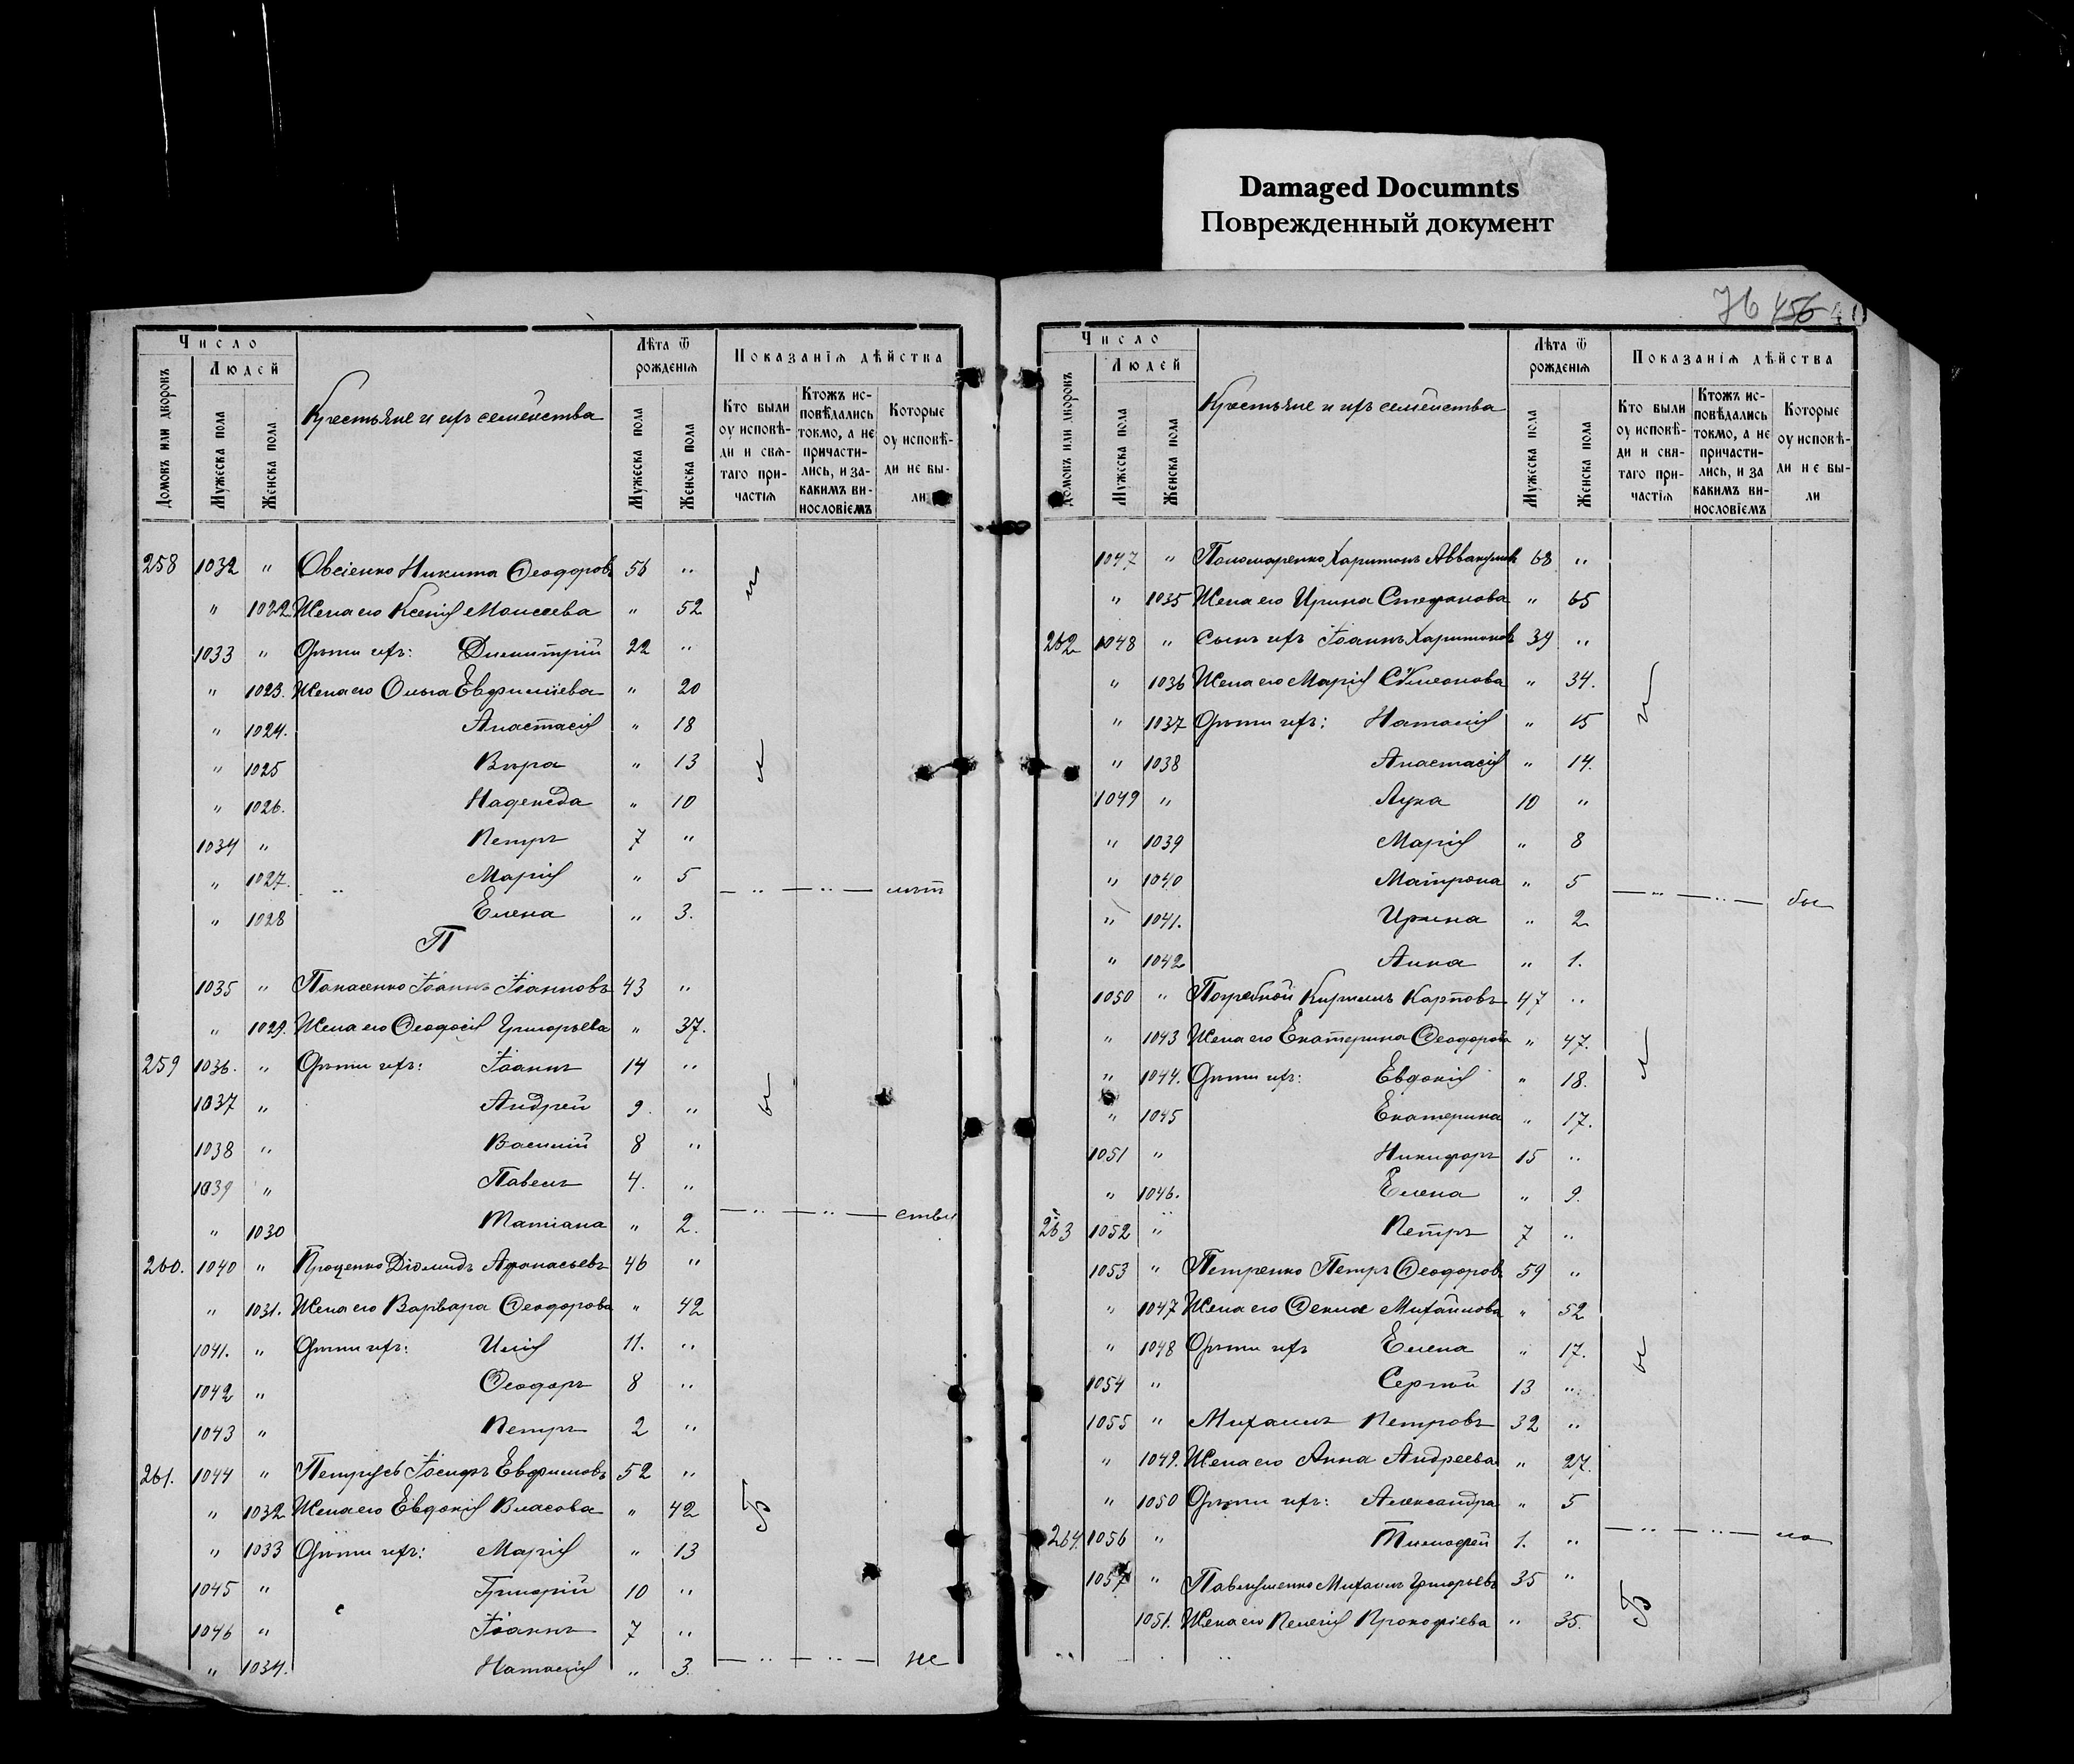 Damaged Documnts
Поврежденный документ
76 456
Число
Людей
Домовъ или дворовъ
Мужеска пола
Женска пола
Крестьяне и ихъ семейства
Лѣта ѿ рожденія
Мужеска пола
Женска пола
Показанія дѣйства
Кто были оу исповѣди и свѧтаго причастіѧ
Ктожъ исповѣдались токмо, а не причастились, и за какимъ винословіемъ
Которые оу исповѣди не были
258 1032 " Овсіенко Никита Ѳеодоровъ 56 "
" 1022 Жена его Ксенія Моисеева " 52
1033 " Дѣти ихъ: Димитрій 22 "
" 1023. Жена его Ольга Евфиміева " 20
" 1024. Анастасія " 18
" 1025 Вѣра " 13
" 1026. Надежда " 10
1034 " Петръ 7 "
" 1027. Марія " 5
" 1028 Елена " 3.
П
1035 " Панасенко Іоаннъ Іоанновъ 43 "
" 1029. Жена его Ѳеодосія Григорьева " 37.
259 1036. " Дѣти ихъ: Іоаннъ 14 "
1037 " Андрей 9. "
1038 " Василій 8 "
1039 " Павелъ 4. "
" 1030 Татіана " 2.
260. 1040 " Проценко Діомидъ Афанасьевъ 46 "
" 1031. Жена его Варвара Ѳеодорова " 42
1041. " Дѣти ихъ: Илія 11. "
1042 " Ѳеодоръ 8 "
1043 " Петръ 2 "
261. 1044 " Петрусь Іосифъ Евфимовъ 52 "
" 1032 Жена его Евдокія Власова " 42
" 1033 Дѣти ихъ: Марія " 13
1045 " Григорій 10 "
1046 " Іоаннъ 7 "
" 1034. Наталія " 3.
Число
Людей
Домовъ или дворовъ
Мужеска пола
Женска пола
Крестьяне и ихъ семейства
Лѣта ѿ рожденія
Мужеска пола
Женска пола
Показанія дѣйства
Кто были оу исповѣди и свѧтаго причастіѧ
Ктожъ исповѣдались токмо, а не причастились, и за какимъ винословіемъ
Которые оу исповѣди не были
1047 " Пономаренко Харитонъ Аввакумовъ 68 "
" 1035 Жена его Ирина Стефанова " 65
262 1048 " Сынъ ихъ Іоаннъ Харитоновъ 39 "
" 1036 Жена его Марія Сѵмеонова " 34.
" 1037 Дѣти ихъ: Наталія " 15
" 1038 Анастасія " 14.
1049 " Лука 10 "
" 1039 Марія " 8
" 1040 Матрона " 5
" 1041. Ирина " 2
" 1042 Анна " 1.
1050 " Погребной Кириллъ Карповъ 47 "
" 1043 Жена его Екатерина Ѳеодорова " 47.
" 1044. Дѣти ихъ: Евдокія " 18.
" 1045 Екатерина " 17.
1051 " Никифоръ 15 "
" 1046. Елена " 9.
263 1052 " Петръ 7 "
1053 " Петренко Петръ Ѳеодоровъ 59 "
" 1047 Жена его Ѳекла Михайлова " 52
" 1048 Дѣти ихъ Елена " 17.
1054 " Сергій 13 "
1055 " Михаилъ Петровъ 32 "
" 1049. Жена его Анна Андреева " 27.
" 1050 Дѣти ихъ: Александра " 5
264. 1056 " Тимофей 1. "
1057 " Павлушенко Михаилъ Григорьевъ 35 "
1051. Жена его Пелагія Прокофіева " 35.